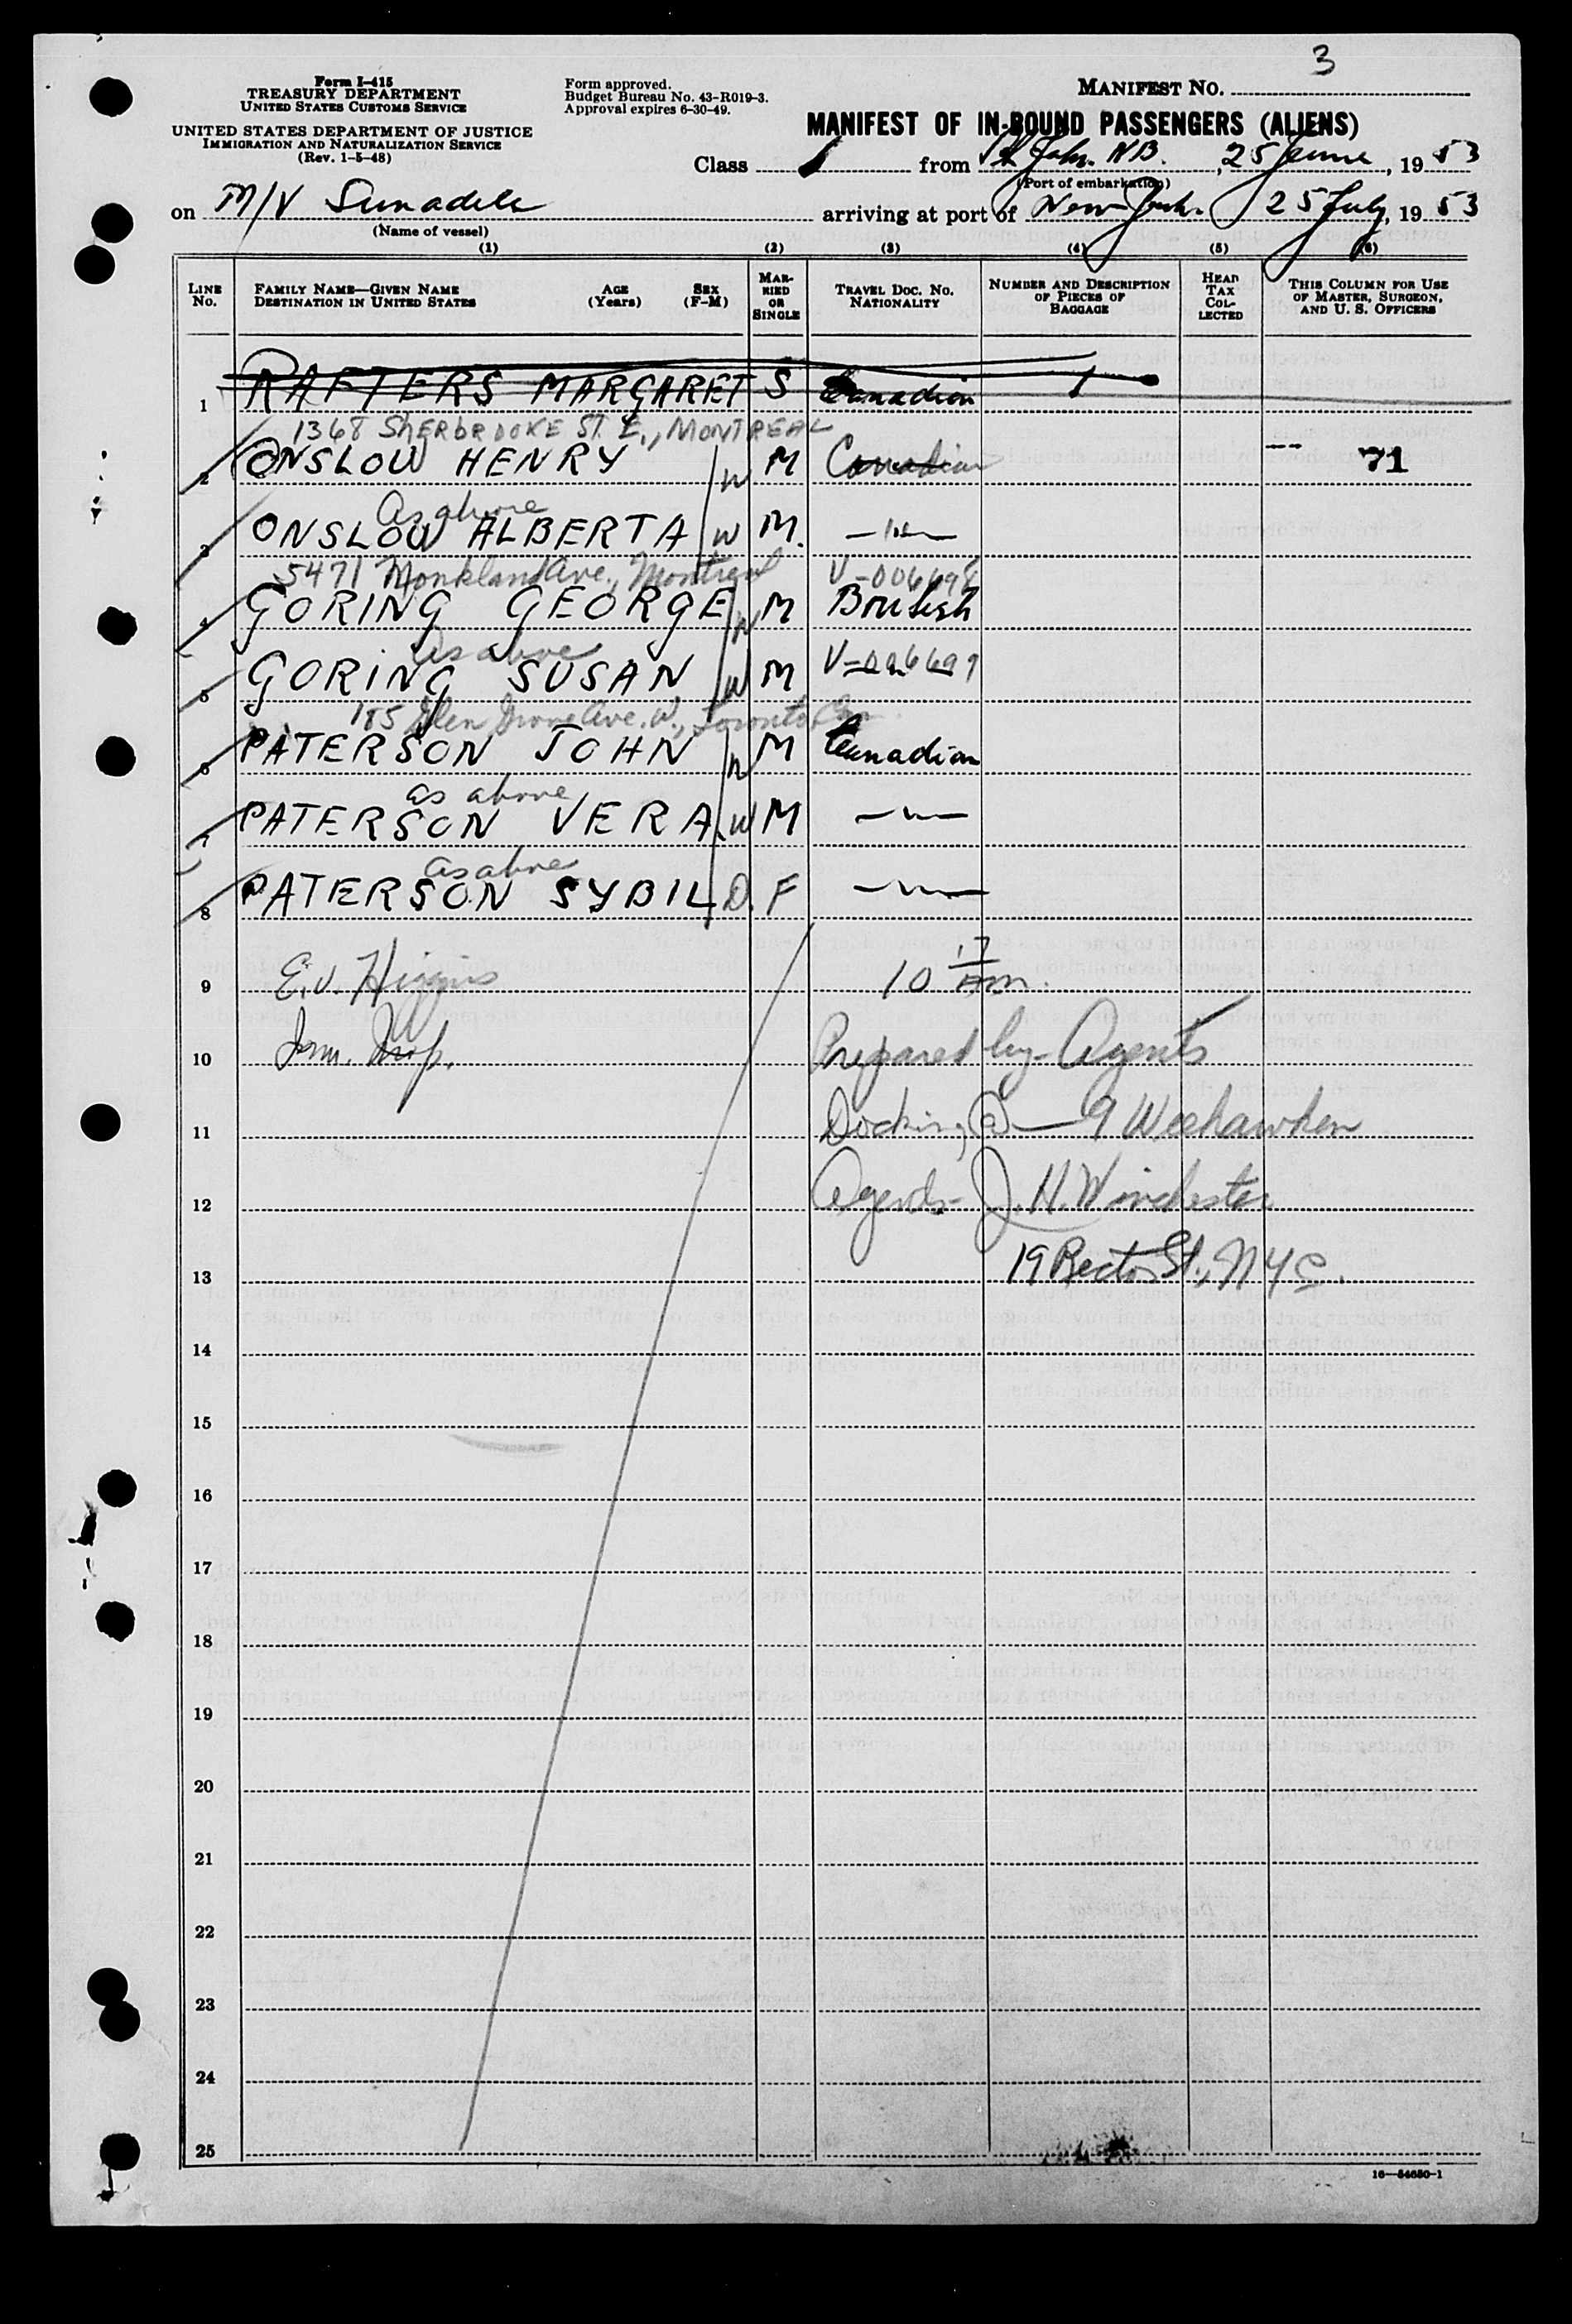 3
Form I-415
TREASURY DEPARTMENT
UNITED STATES CUSTOMS SERVICE
UNITED STATES DEPARTMENT OF JUSTICE
IMMIGRATION AND NATURALIZATION SERVICE
(Rev. 1-5-48)
Form approved.
Budget Bureau No. 43-R019-3.
Approval expires 6-30-49.
MANIFEST NO.
MANIFEST OF IN-BOUND PASSENGERS (ALIENS)
Class 1 from St John. N.B., 25 June, 1953
(Port of embarkation)
on M/V Sunadele arriving at port of New York. 25 July, 1953
(Name of vessel)
(1) (2) (3) (4) (5) (6)
LINE No. FAMILY NAME—GIVEN NAME DESTINATION IN UNITED STATES AGE (Years) SEX (F-M) MARRIED OR SINGLE TRAVEL DOC. NO. NATIONALITY NUMBER AND DESCRIPTION OF PIECES OF BAGGAGE HEAD TAX COLLECTED THIS COLUMN FOR USE OF MASTER, SURGEON, AND U. S. OFFICERS
1 RAFTERS MARGARET S Canadian 1
1368 SHERBROOKE ST. E., MONTREAL
2 ONSLOW HENRY W M Canadian 71
As above
3 ONSLOW ALBERTA W M. —"—
5471 Monkland Ave., Montreal V-006698
4 GORING GEORGE W M British
As above V-006697
5 GORING SUSAN W M
185 Glen Grove Ave. W., Toronto Can.
6 PATERSON JOHN W M Canadian
as above
7 PATERSON VERA W M —"—
as above
8 PATERSON SYBIL D. F —"—
9 E.V. Higgins 10 17 AM.
10 Imm. Insp. Prepared by Agents
11 Docking @ — 9 Weehawken
12 Agents- J. H. Winchester
13 19 Rector St., NYC.
14
15
16
17
18
19
20
21
22
23
24
25
16—54650-1